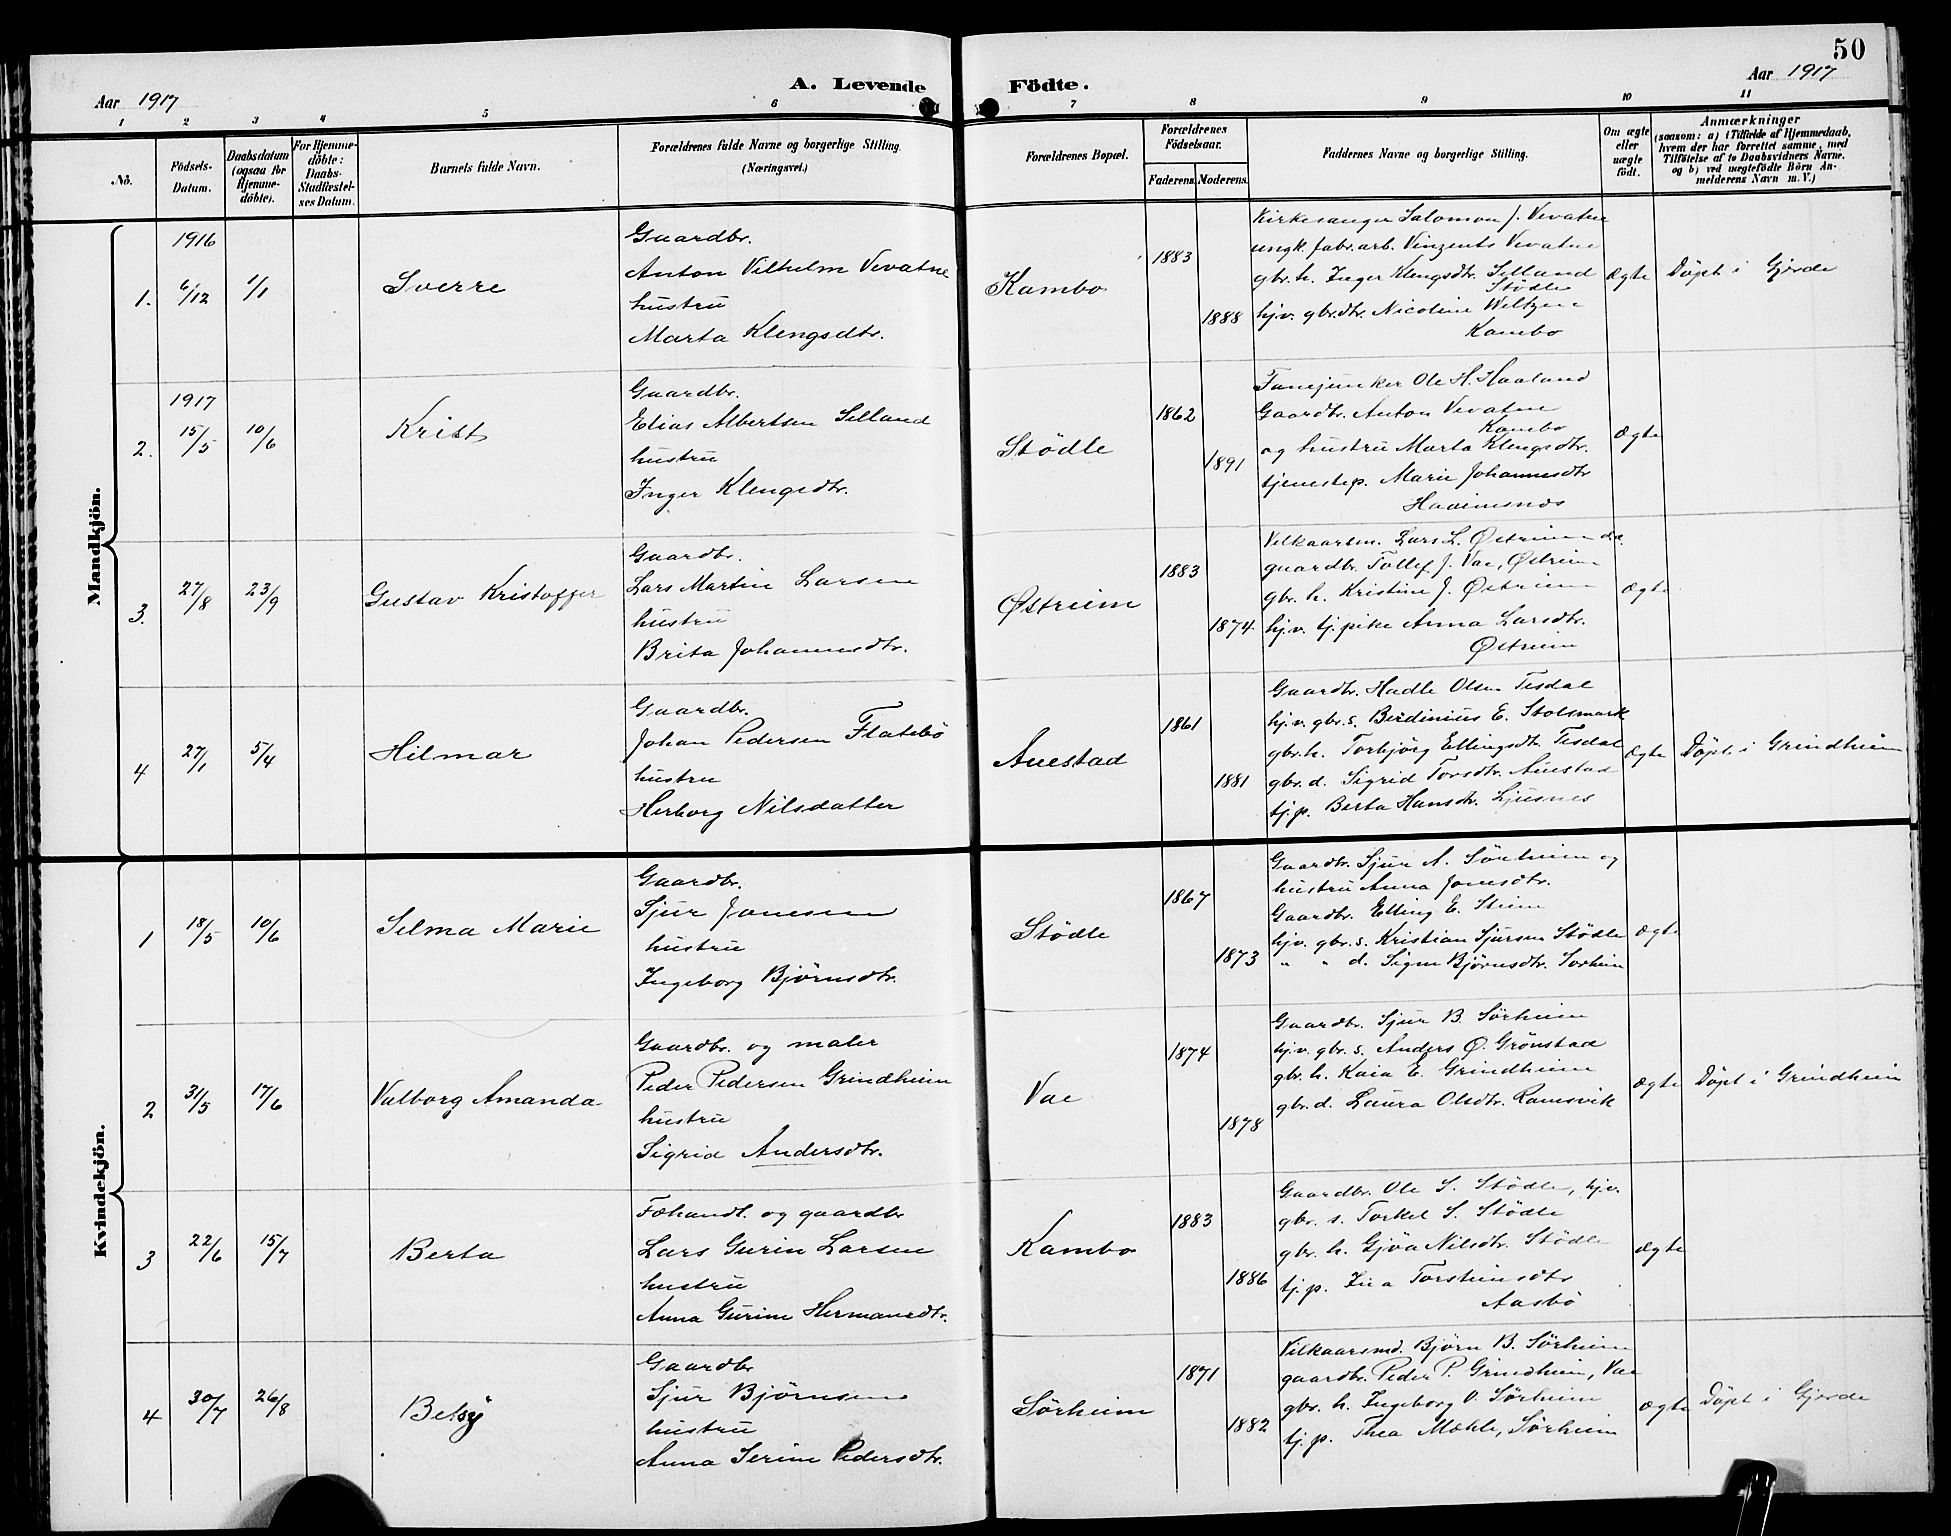 50
A. Levende Födte.
Aar 1917
Aar 1917
1 2 3 4 5 6 7 8 9 10 11
No.
Födsels-Datum.
Daabsdatum (ogsaa for Hjemme-döbte).
For Hjemme-döbte: Daabs-Stadfæstel-ses Datum.
Barnets fulde Navn.
Forældrenes fulde Navne og borgerlige Stilling. (Næringsvei.)
Forældrenes Bopæl.
Forældrenes Födselsaar.
Faderens.
Moderens.
Faddernes Navne og borgerlige Stilling.
Om ægte eller uægte födt.
Anmærkninger
(saasom: a) i Tilfælde af Hjemmedaab, hvem der har forrettet samme, med Tilföielse af to Daabsvidners Navne, og b) ved uægtefödte Börn An-melderens Navn m. V.)
Mandkjön.
1. 1916 6/12 1/1 Sverre
Gaardbr.
Anton Vilhelm Vevatne
hustru
Marta Klengsdtr.
Kambo 1883 1888
Kirkesanger Salomon J. Vevatne
ungk. fabr.arb. Vinzents Vevatne
gbr. h. Inger Klengsdtr. Selland
Stödle
hj.v. gbr.dtr. Nicoline Weltzen
Kambo
Ægte Döpt i Gjerde
2. 1917 15/5 10/6 Krist
Gaardbr.
Elias Albertsen Selland
hustru
Inger Klengsdtr.
Stödle 1862 1891
Fanejunker Ole H. Haaland
Gaardbr. Anton Vevatne
Kambo
og hustru Marta Klengsdtr.
tjenestep. Marie Johannesdtr
Ægte
3. 27/8 23/9 Gustav Kristoffer
Gaardbr.
Lars Martin Larsen
hustru
Brita Johannesdtr.
Østreim 1883 1874
Vilkaarsm. Lars L. Østreim
gaardbr. Tollef J. Vae, Østreim
gbr. h. Kristine J. Østreim
hj.v. tj. pike Anna Larsdtr.
Østreim
Ægte
4 27/1 5/4 Hilmar
Gaardbr.
Johan Pedersen Flatebö
hustru
Herborg Nilsdatter
Auestad 1861 1881
Gaardbr. Hadle Olsen Tesdal
hj.v. gbr. s. Berdinius E. Stolsmark
gbr. h. Torbjörg Ellingsdtr. Tesdal
gbr. d. Sigrid Torsdtr. Auestad
tj.p. Berta Hansdtr. Ljusnes
Ægte Döpt i Grindheim
Kvindekjön.
1 18/5 10/6 Selma Marie
Gaardbr.
Sjur Jonesen
hustru
Ingeborg Björnsdtr.
Stödle 1867 1873
Gaardbr. Sjur A. Sörheim og
hustru Anna Jonesdtr.
Gaardbr. Elling E. Steine
hj.v. gbr. s. Kristian Sjursen Stödle
" " d. Signe Björnsdtr. Sorheim
Ægte
2 31/5 17/6 Valborg Amanda
Gaardbr. og maler
Peder Pedersen Grindheim
hustru
Sigrid Andersdtr.
Vae 1874 1878
Gaardbr. Sjur B. Sörheim
hj.v. gbr. s. Anders Ø. Grönstad
gbr. h. Kaia E. Grindheim
gbr. d. Laura Olsdtr. Ramsvik
Ægte Döpt i Grindheim
3 22/6 15/7 Berta
Fæhandl. og gaardbr
Lars Gurin Larsen
hustru
Anna Gurine Hermansdtr.
Kambo 1883 1886
Gaardbr. Ole S. Stödle, hj.v.
gbr. s. Torkel S. Stödle
gbr. h. Gjöa Nilsdtr. Stödle
tj.p. Ina Torsteinsdtr
Aasbö
Ægte
4 30/7 26/8 Betsy
Gaardbr
Sjur Björnsen
hustru
Anna Serine Pedersdtr.
Sörheim 1871 1882
Vilkaarsmd. Björn B. Sörheim
gaardbr. Peder P. Grindheim, Vae
gbr. h. Ingeborg O. Sörheim
tj.p. Thea Mæhle, Sörheim
Ægte Döpt i Gjerde